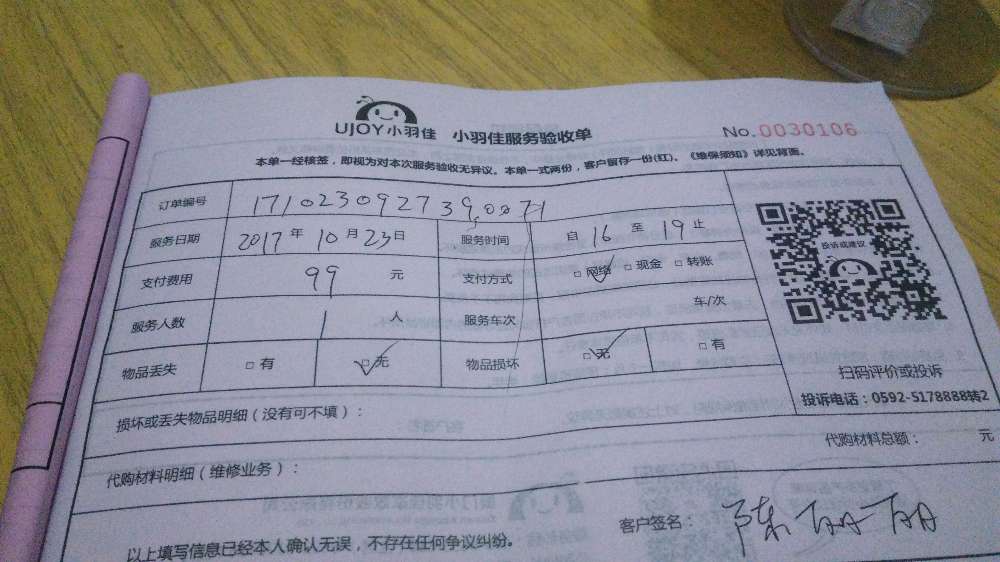 UJOY小羽佳 小羽佳服务验收单 No.0030106
本单一经核签，即视为对本次服务验收无异议。本单一式两份，客户留存一份(红)，《维保须知》详见背面。
订单编号 171023092739,0071
服务日期 2017年10月23日 服务时间 自16至19止
支付费用 99元 支付方式 □网络 □现金 □转账
服务人数 1人 服务车次 车/次
物品丢失 □有 □无 物品损坏 □无 □有
投诉或建议
扫码评价或投诉
投诉电话：0592-5178888转2
损坏或丢失物品明细（没有可不填）：
代购材料总额： 元
代购材料明细（维修业务）：
客户签名：陈丽丽
以上填写信息已经本人确认无误，不存在任何争议纠纷。